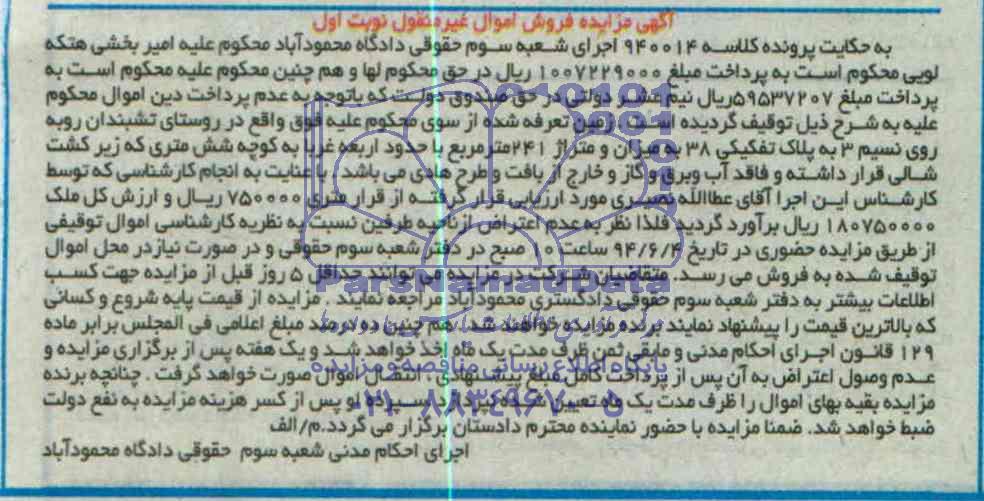 آگهی مزایده فروش اموال غیرمنقول نوبت اول
به حکایت پرونده کلاسه ۹۴۰۰۱۴ اجرای شعبه سوم حقوقی دادگاه محمودآباد محکوم علیه امیر بخشی هتکه
لویی محکوم است به پرداخت مبلغ ۱۰۰۷۲۲۹۰۰۰ ریال در حق محکوم لها و هم چنین محکوم علیه محکوم است به
پرداخت مبلغ ۵۹۵۳۷۲۰۷ریال نیم عشر دولتی در حق صندوق دولت که باتوجه به عدم پرداخت دین اموال محکوم
علیه به شرح ذیل توقیف گردیده است ۱.زمین تعرفه شده از سوی محکوم علیه فوق واقع در روستای تشبندان روبه
روی نسیم ۳ به پلاک تفکیکی ۳۸ به میزان و متراژ ۲۴۱مترمربع با حدود اربعه غربا به کوچه شش متری که زیر کشت
شالی قرار داشته و فاقد آب وبرق و گاز و خارج از بافت و طرح هادی می باشد . با عنایت به انجام کارشناسی که توسط
کارشناس این اجرا آقای عطاالله نصیری مورد ارزیابی قرار گرفته از قرار متری ۷۵۰۰۰۰ ریال و ارزش کل ملک
۱۸۰۷۵۰۰۰۰ ریال برآورد گردید فلذا نظر به عدم اعتراض ازناحیه طرفین نسبت به نظریه کارشناسی اموال توقیفی
از طریق مزایده حضوری در تاریخ ۹۴/۶/۴ ساعت ۱۰ صبح در دفتر شعبه سوم حقوقی و در صورت نیازدر محل اموال
توقیف شده به فروش می رسد. متقاضیان شرکت در مزایده می توانند حداقل ۵ روز قبل از مزایده جهت کسب
اطلاعات بیشتر به دفتر شعبه سوم حقوقی دادگستری محمودآباد مراجعه نمایند . مزایده از قیمت پایه شروع و کسانی
که بالاترین قیمت را پیشنهاد نمایند برنده مزایده خواهند شد . هم چنین ده درصد مبلغ اعلامی فی المجلس برابر ماده
۱۲۹ قانون اجرای احکام مدنی و مابقی ثمن ظرف مدت یک ماه اخذ خواهد شد و یک هفته پس از برگزاری مزایده و
عدم وصول اعتراض به آن پس از پرداخت کامل مبلغ پیشنهادی ، انتقال اموال صورت خواهد گرفت . چنانچه برنده
مزایده بقیه بهای اموال را ظرف مدت یک ماه تعیین شده نپردازد سپرده او پس از کسر هزینه مزایده به نفع دولت
ضبط خواهد شد. ضمنا مزایده با حضور نماینده محترم دادستان برگزار می گردد.م/الف
اجرای احکام مدنی شعبه سوم حقوقی دادگاه محمودآباد
ParsNamadData
پایگاه اطلاع رسانی مناقصه و مزایده
۰۲۱-۸۸۳۴۹۶۷۰-۵